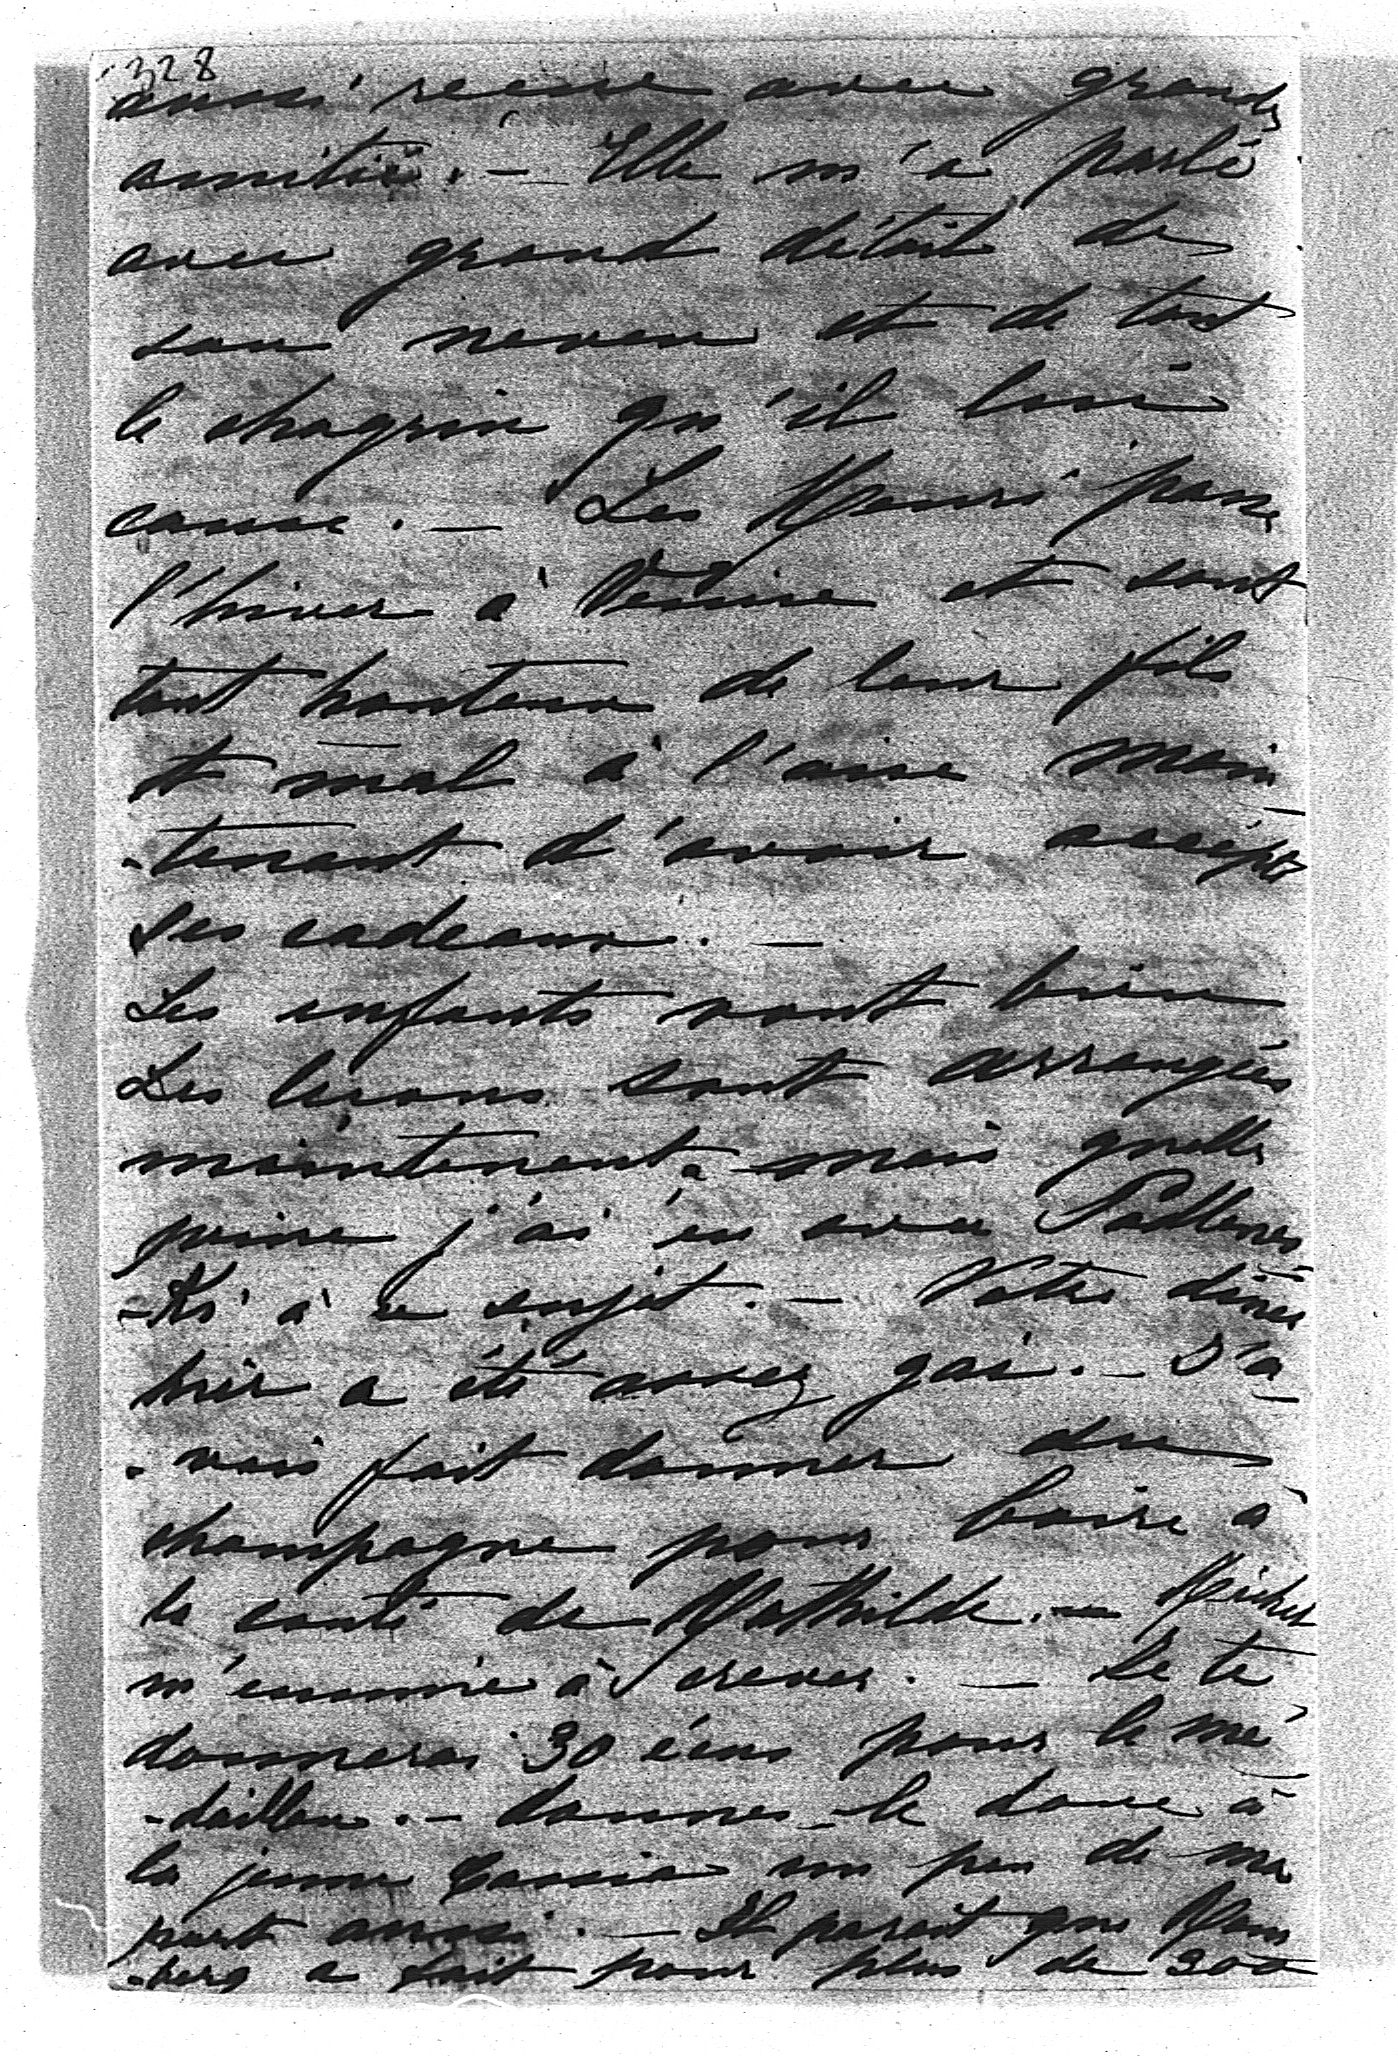 328
aussi reçue avec grande
amitié. — Elle m'a parlé
avec grand détail de
son neveu et de tout
le chagrin qu'il lui
cause. — Les Henri pass
l'hiver à Venise et sont
tout honteux de leur fils
et mal à l'aise main
-tenant d'avoir accepté
ses cadeaux. —
Les enfants vont bien
Les leçons sont arrangées
maintenant. mais quelle
peine j'ai eu avec
-ki à ce sujet. — Votre dîner
hier a été assez gai. — J'a
-vais fait donner du
champagne pour boire à
la santé de Mathilde. — Michel
m'ennuie à crever. — Je te
donnerai 30 écus pour le mé
-daillon. — donnes-le donc à
la jeune un peu de ma
part aussi. — Il parait que
-berg a fait pour plus de 300